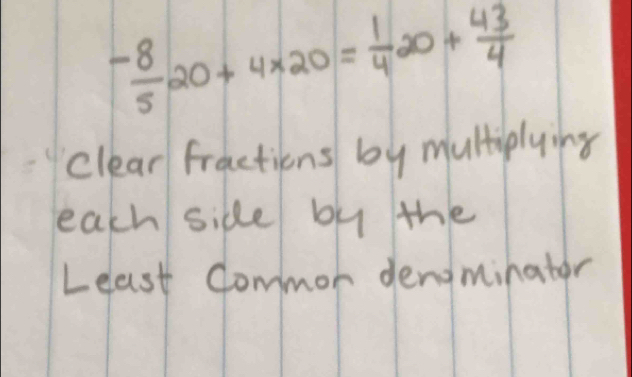 -8/5 20 + 4×20 = 1/4 20 + 43/4
-"Clear fractions by multiplying
each side by the
Least Common denominator